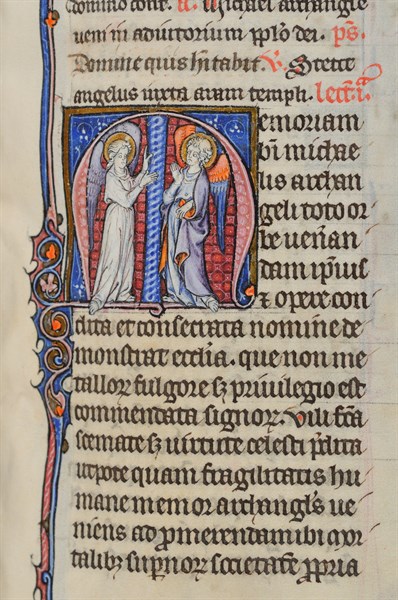 domino contr. A. Michael archangle
veni in adiutorium pplo dei. ps.
Domine quis hitabit. V. Stetit
angelus iuxta aram templi. lect. i.a
Memoriam
bti michae
lis archan
geli toto or
be veneran
dam ipsius
⁊ opere con
dita et consecrata nomine de
monstrat ecclia. que non me
tallorꝝ fulgore sꝫ priuilegio est
commendata signorꝝ. vili fca
scemate sꝫ uirtute celesti pdita
utpote quam fragilitatis hu
mane memor archangls ue
niens ad promerendam ibi mor
talibꝫ supnorꝝ societate propria